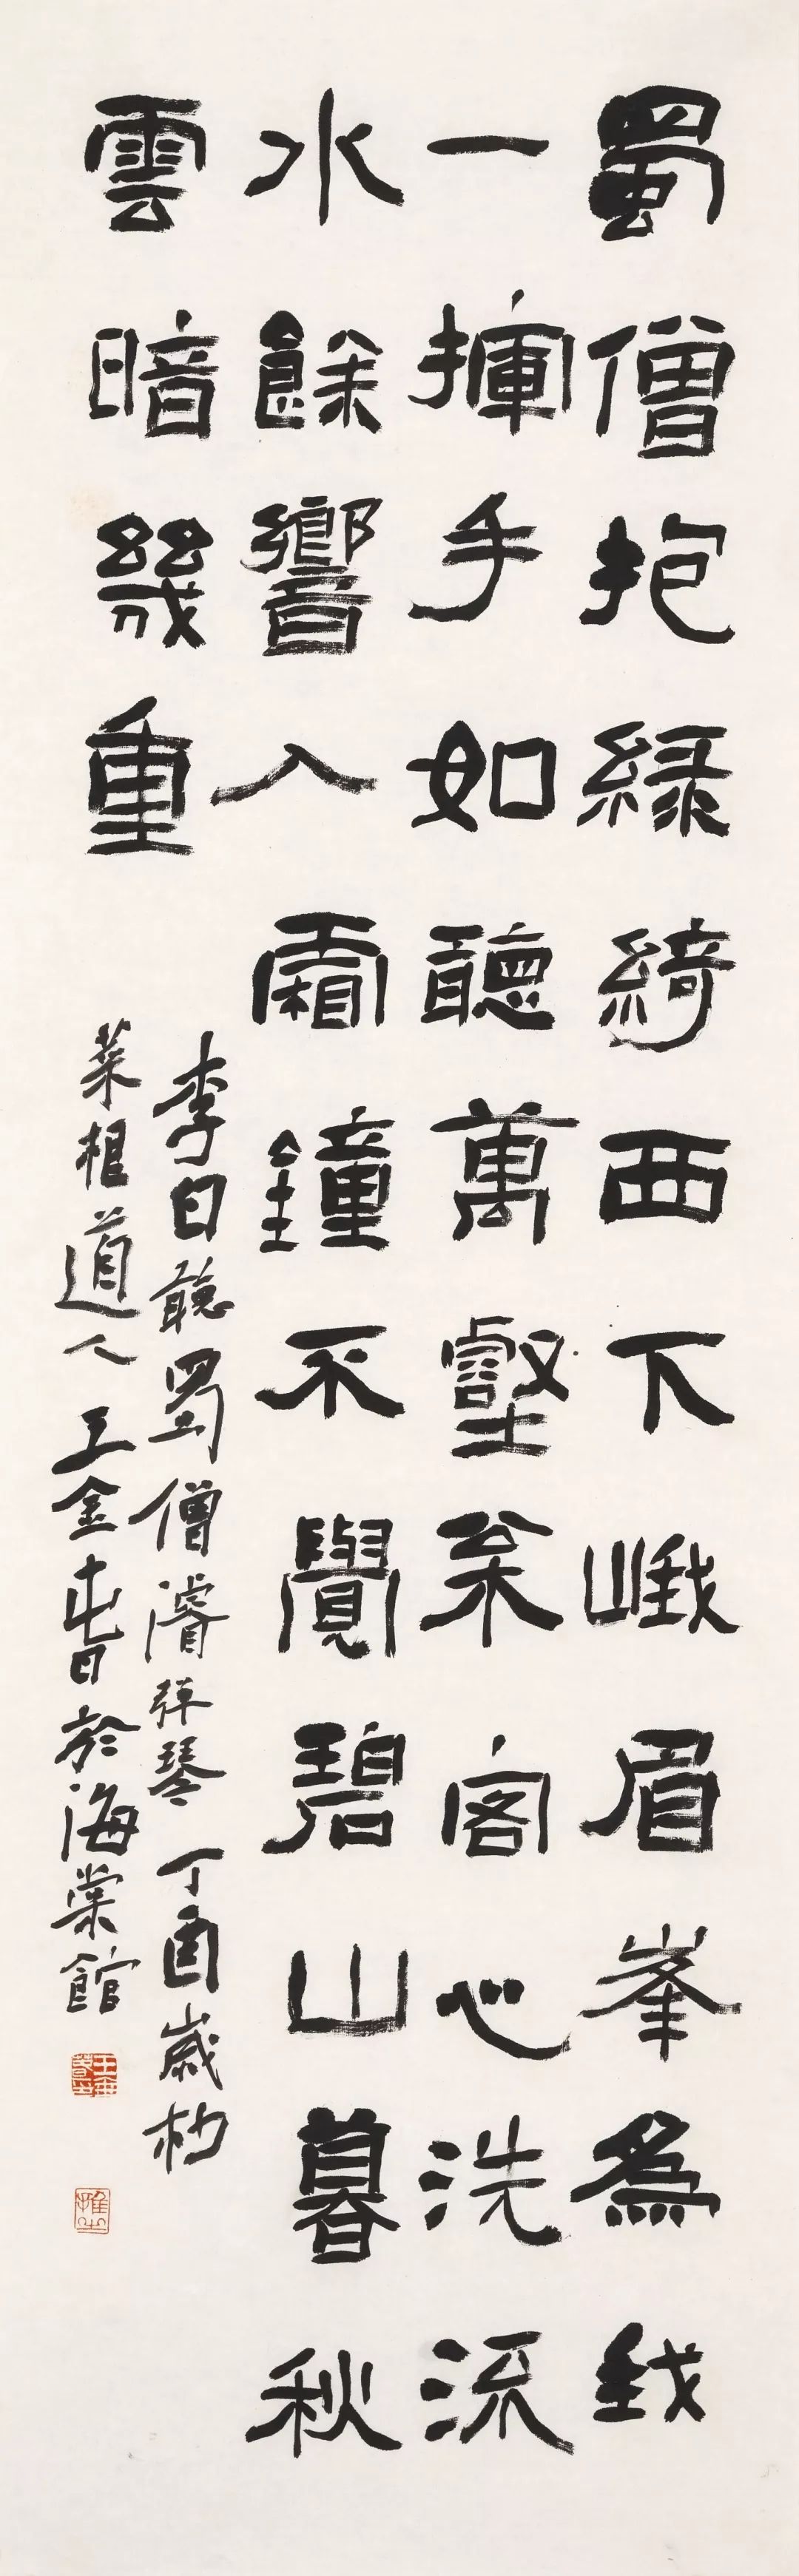 蜀僧抱綠綺西下峨眉峯為我
一揮手如聽萬壑枀客心洗流
水餘響入霜鐘不覺碧山暮秋
雲暗幾重
李白聽蜀僧濬弹琴 丁酉歲杪
菜根道人王金旾於海棠館